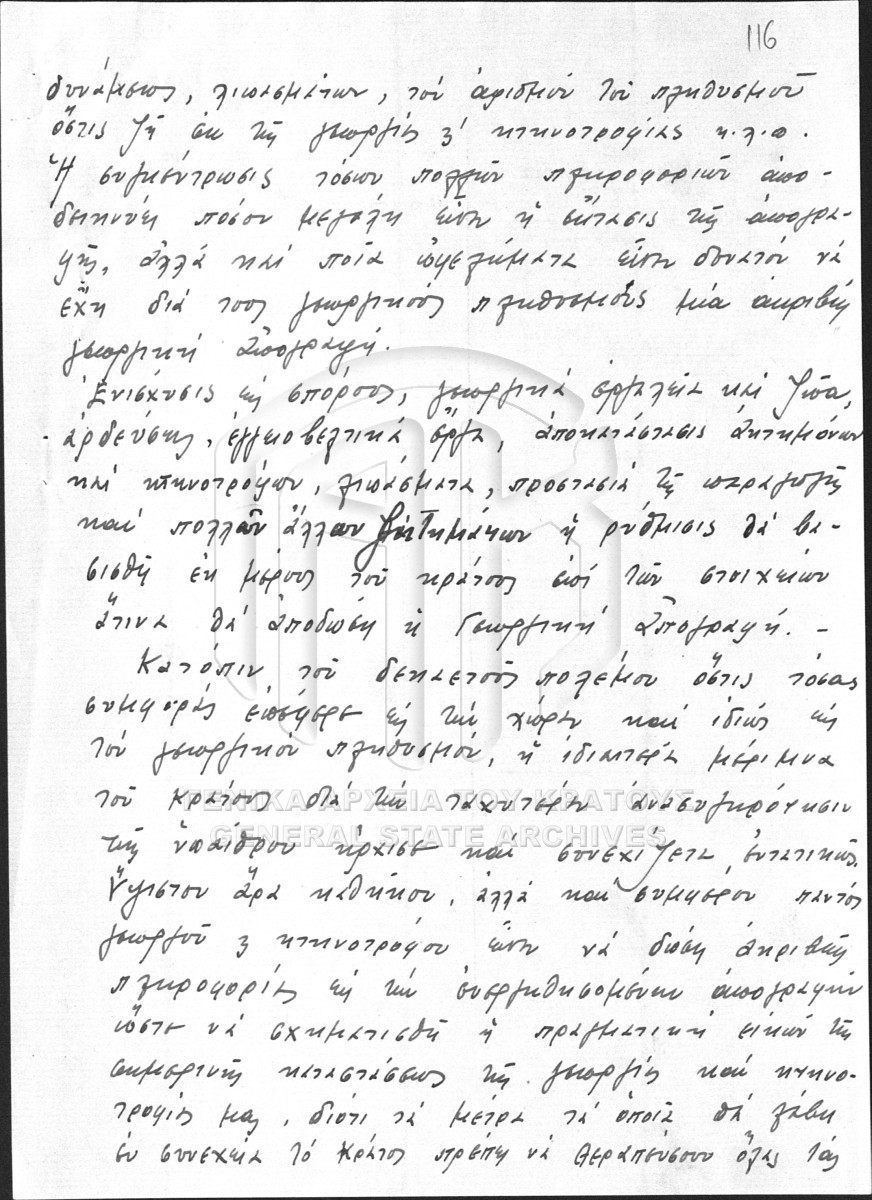 116
δυνάμεως, λιπασμάτων, τόν ἀριθμόν τοῦ πληθυσμοῦ
ὅστις ζῆ ἐκ τῆς γεωργίας & κτηνοτροφίας κ.λ.π.
Ἡ συγκέντρωσις τόσων πολλῶν πληροφοριῶν ἀπο-
δεικνύει πόσον μεγάλη εἶναι ἡ ἔκτασις τῆς ἀπογρα-
φῆς, ἀλλά καί ποῖα ὠφελήματα εἶναι δυνατόν νά
ἔχη διά τους γεωργικούς πληθυσμούς μία ἀκριβής
γεωργική ἀπογραφή.
Ἐνίσχυσις εἰς σπόρους, γεωργικά ἐργαλεῖα καί ζῶα,
ἀρδεύσεις, ἐγγειοβελτικά ἔργα, ἀποκατάστασις ἀκτημόνων
καί κτηνοτρόφων, λιπάσματα, προστασία τῆς παραγωγῆς
καί πολλῶν ἄλλων ζητημάτων ἡ ρύθμισις θά βα-
σισθῆ ἐκ μέρους τοῦ κράτους ἐπί τῶν στοιχείων
ἅτινα θά ἀποδώση ἡ Γεωργική ἀπογραφή. -
Κατόπιν τοῦ δεκαετοῦς πολέμου ὅστις τόσας
συμφοράς ἐπέφερε εἰς τήν χώραν καί ἰδίως εἰς
τόν γεωργικόν πληθυσμόν, ἡ ἰδιαιτέρα μέριμνα
τοῦ Κράτους διά τήν ταχυτέραν ἀνασυγκρότησιν
ΓΕΝΙΚΑ ΑΡΧΕΙΑ ΤΟΥ ΚΡΑΤΟΥΣ
GENERAL STATE ARCHIVES
τῆς ὑπαίθρου ἤρχισε καί συνεχίζεται ἐντατικῶς.
Ὕψιστον ἄρα καθῆκον, ἀλλά καί συμφέρον παντός
γεωργοῦ & κτηνοτρόφου εἶναι νά δώση ἀκριβεῖς
πληροφορίας εἰς τήν ἐνεργηθησομένην ἀπογραφήν
ὥστε νά σχηματισθῆ ἡ πραγματική εἰκών τῆς
σημερινῆς καταστάσεως τῆς γεωργίας καί κτηνο-
τροφίας μας, διότι τά μέτρα τά ὁποῖα θά λάβη
ἐν συνεχεία τό Κράτος πρέπει νά θεραπεύσουν ὅλας τάς